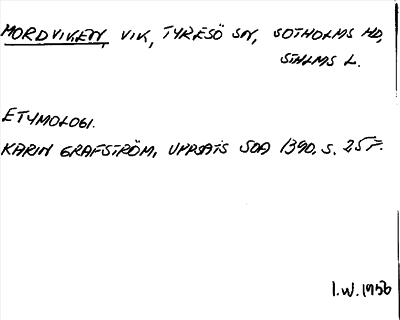 MORDVIKEN, VIK, TYRESÖ SN, SOTHOLMS HD,
STHLMS L.
ETYMOLOGI.
KARIN GRAFSTRÖM, UPPSATS SOA 1390, S. 25 F.
I.W. 1956